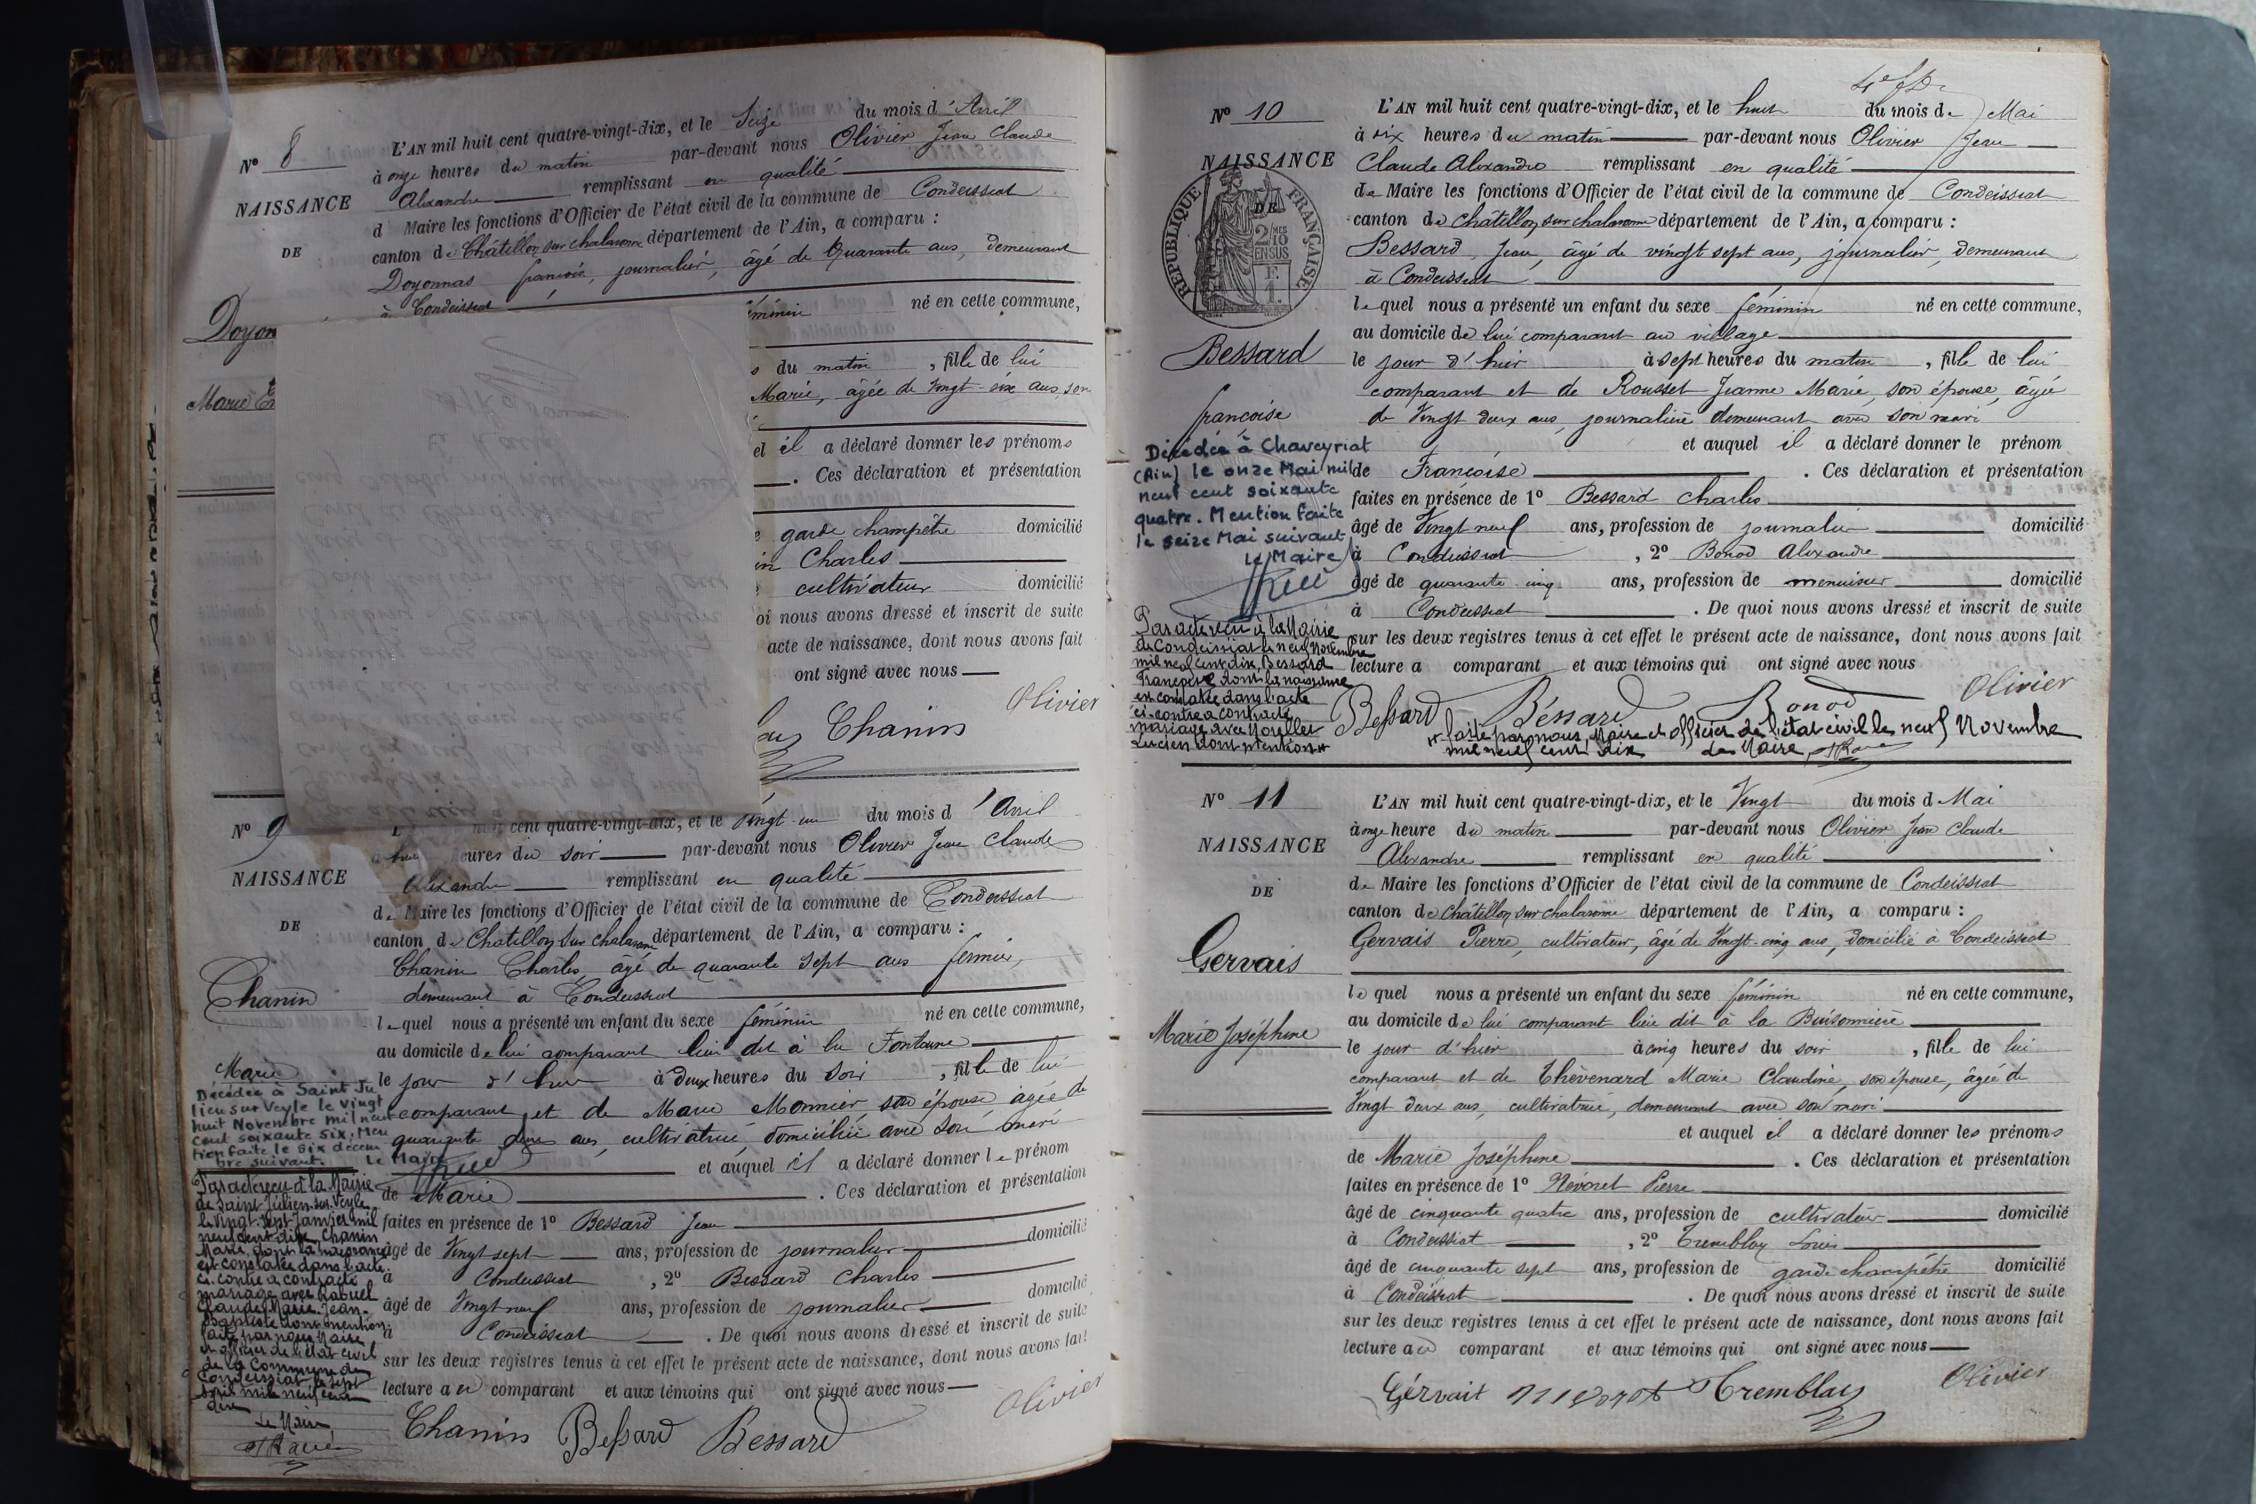 N° 8
NAISSANCE
DE
Doyon
Marie
L'AN mil huit cent quatre-vingt-dix, et le Seize du mois d'Avril
à onze heures du matin par-devant nous Olivier Jean Claude
Alexandre remplissant en qualité
d Maire les fonctions d'Officier de l'état civil de la commune de Condeissiat
canton de Châtillon sur chalaronne département de l'Ain, a comparu :
Doyonnas françois, journalier, âgé de Quarante ans, demeurant
à Condeissiat
féminin né en cette commune,
du matin , fille de lui
Marie, âgée de vingt-six ans, son
el il a déclaré donner les prénoms
. Ces déclaration et présentation
garde champêtre domicilié
in Charles
cultivateur domicilié
oi nous avons dressé et inscrit de suite
acte de naissance, dont nous avons fait
ont signé avec nous
Olivier
Chanin
N° 9
NAISSANCE
DE
Chanin
Marie
Décédée à Saint Ju
lien sur Veyle le vingt
huit Novembre mil neuf
cent soixante six. Men
tion faite le six décem
bre suivant. Le Maire
Par acte reçu à la Mairie
de Saint Julien sur Veyle
le vingt-sept Janvier mil
neuf cent dix, Chanin
Marie, dont la naissance
est constatée dans l'acte
ci-contre a contracté
mariage avec
Claude Marie Jean-
Baptiste dont mention
faite par nous Maire
et officier de l'état civil
de la Commune de
Condeissiat le sept
mil neuf cent
dix
Le Maire
cent quatre-vingt-dix, et le Vingt-un du mois d'Avril
heures du soir par-devant nous Olivier Jean Claude
Alexandre remplissant en qualité
de Maire les fonctions d'Officier de l'état civil de la commune de Condeissiat
canton de Châtillon sur chalaronne département de l'Ain, a comparu :
Chanin Charles, âgé de quarante sept ans fermier,
demeurant à Condeissiat
lequel nous a présenté un enfant du sexe féminin né en cette commune,
au domicile de lui comparant lieu dit à la Fontaine
le jour d'hier à deux heures du soir , fille de lui
comparant et de Marie Monnier, son épouse âgée de
quarante deux ans, cultivatrice, domiciliée avec son mari
et auquel il a déclaré donner le prénom
de Marie . Ces déclaration et présentation
faites en présence de 1° Bessard Jean
âgé de Vingt sept ans, profession de journalier domicilié
à Condeissiat , 2° Bessard Charles
âgé de Vingt neuf ans, profession de journalier domicilié
à Condeissiat . De quoi nous avons dressé et inscrit de suite
sur les deux registres tenus à cet effet le présent acte de naissance, dont nous avons fait
lecture au comparant et aux témoins qui ont signé avec nous
Chanin Bessard Bessard Olivier
N° 10
NAISSANCE
DE
REPUBLIQUE FRANÇAISE
2/10 MES
EN SUS
Bessard
françoise
Décédée à Chaveyriat
(Ain) le onze Mai mil
neuf cent soixante
quatre. Mention faite
le seize Mai suivant
Le Maire
Par acte reçu à la Mairie
de Condeissiat le neuf Novembre
mil neuf cent dix, Bessard
Françoise dont la naissance
est constatée dans l'acte
ci-contre a contracté
mariage avec Morellet
Lucien dont mention
L'AN mil huit cent quatre-vingt-dix, et le huit du mois de Mai
à six heures du matin par-devant nous Olivier Jean
Claude Alexandre remplissant en qualité
de Maire les fonctions d'Officier de l'état civil de la commune de Condeissiat
canton de Châtillon sur chalaronne département de l'Ain, a comparu :
Bessard Jean, âgé de vingt sept ans, journalier, demeurant
à Condeissiat
lequel nous a présenté un enfant du sexe féminin né en cette commune,
au domicile de lui comparant au village
le jour d'hier à sept heures du matin , fille de lui
comparant et de Rousset Jeanne Marie, son épouse, âgée
de Vingt deux ans, journalière demeurant avec son mari
et auquel il a déclaré donner le prénom
de Françoise . Ces déclaration et présentation
faites en présence de 1° Bessard Charles
âgé de Vingt neuf ans, profession de journalier domicilié
à Condeissiat , 2° Bonod Alexandre
âgé de quarante cinq ans, profession de menuisier domicilié
à Condeissiat . De quoi nous avons dressé et inscrit de suite
sur les deux registres tenus à cet effet le présent acte de naissance, dont nous avons fait
lecture a comparant et aux témoins qui ont signé avec nous
Bessard Béssard Bonod Olivier
faite par nous Maire et officier de l'état civil le neuf Novembre
mil neuf cent dix Le Maire
N° 11
NAISSANCE
DE
Gervais
Marie Joséphine
L'AN mil huit cent quatre-vingt-dix, et le Vingt du mois d Mai
à onze heure du matin par-devant nous Olivier Jean Claude
Alexandre remplissant en qualité
de Maire les fonctions d'Officier de l'état civil de la commune de Condeissiat
canton de Châtillon sur chalaronne département de l'Ain, a comparu :
Gervais Pierre, cultivateur, âgé de Vingt-cinq ans, domicilié à Condeissiat
lequel nous a présenté un enfant du sexe féminin né en cette commune,
au domicile de lui comparant lieu dit à la Buisonnière
le jour d'hier à cinq heures du soir , fille de lui
comparant et de Thévenard Marie Claudine, son épouse, âgée de
Vingt deux ans, cultivatrice, demeurant avec son mari
et auquel il a déclaré donner les prénoms
de Marie Joséphine . Ces déclaration et présentation
faites en présence de 1° Névoret Pierre
âgé de cinquante quatre ans, profession de cultivateur domicilié
à Condeissiat , 2° Tremblay Louis
âgé de cinquante sept ans, profession de garde champêtre domicilié
à Condeissiat . De quoi nous avons dressé et inscrit de suite
sur les deux registres tenus à cet effet le présent acte de naissance, dont nous avons fait
lecture au comparant et aux témoins qui ont signé avec nous
Gérvait Tremblay Olivier